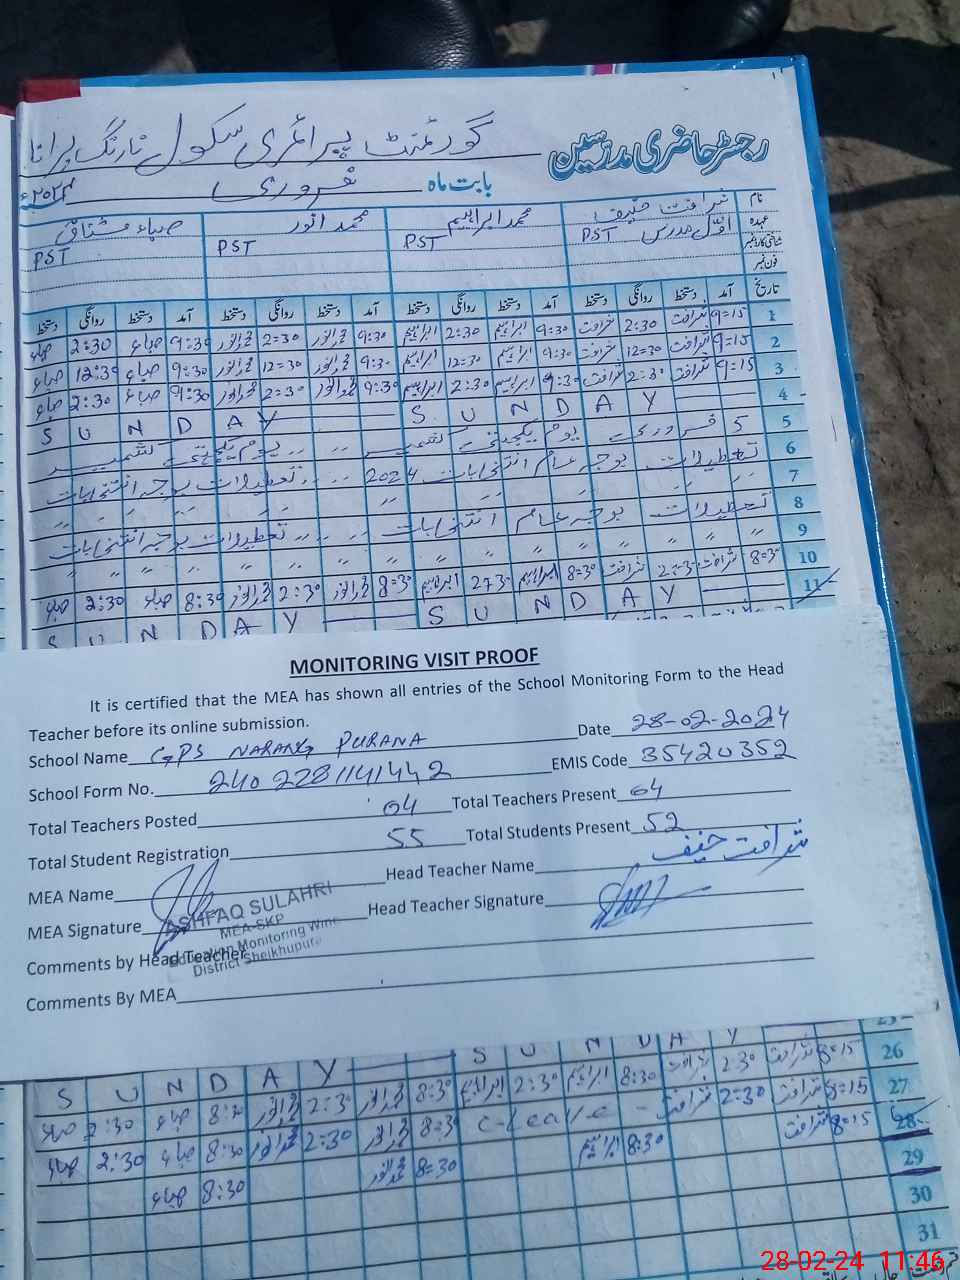 گورنمنٹ پرائمری سکول نارنگ پرانا
رجسٹر حاضری مدرسین
بابت ماہ فروری ۲۰۲۴ء
نام شرافت حنیف محمد ابراہیم محمد انور صباء مشتاق
عہدہ اول مدرس PST PST PST PST
شناختی کارڈ نمبر
فون نمبر
تاریخ آمد دستخط روانگی دستخط آمد دستخط روانگی دستخط آمد دستخط روانگی دستخط آمد دستخط روانگی دستخط
1 9=15 شرافت 2:30 شرافت 9:30 ابراہیم 2:30 ابراہیم 9:30 محمد انور 2=30 محمد انور 9:30 صباء 2:30 صباء
2 9=15 شرافت 12=30 شرافت 9:30 ابراہیم 12=30 ابراہیم 9:30 محمد انور 12=30 محمد انور 9:30 صباء 12:30 صباء
3 9=15 شرافت 2:30 شرافت 9:30 ابراہیم 2:30 ابراہیم 9:30 محمد انور 2:30 محمد انور 9:30 صباء 2:30 صباء
4 SUNDAY SUNDAY
5 5 فروری یوم یکجہتی کشمیر یوم یکجہتی کشمیر
6 تعطیلات بوجہ عام انتخابات 2024 تعطیلات بوجہ انتخابات
7
8 تعطیلات بوجہ عام انتخابات تعطیلات بوجہ انتخابات
9
10 8=30 شرافت 2:30 شرافت 8=30 ابراہیم 2:30 ابراہیم 8=30 محمد انور 2:30 محمد انور 8:30 صباء 2:30 صباء
11 SUNDAY SUNDAY
MONITORING VISIT PROOF
It is certified that the MEA has shown all entries of the School Monitoring Form to the Head
Teacher before its online submission.
School Name GPS NARANG PURANA Date 28-02-2024
School Form No. 240 2281141442 EMIS Code 35420352
Total Teachers Posted 04 Total Teachers Present 04
Total Student Registration 55 Total Students Present 52
MEA Name Head Teacher Name شرافت حنیف
MEA Signature Head Teacher Signature
ASHFAQ SULAHRI
MEA-SKP
Education Monitoring Wing
District Sheikhupura
Comments by Head Teacher
Comments By MEA
25 SUNDAY SUNDAY
26 8=15 شرافت 2:30 شرافت 8:30 ابراہیم 2:30 ابراہیم 8:30 محمد انور 2:30 محمد انور 8:30 صباء 2:30 صباء
27 8=15 شرافت 2:30 شرافت C-Leave 8=30 محمد انور 2:30 محمد انور 8:30 صباء 2:30 صباء
28 8=15 شرافت 8:30 ابراہیم 8=30 محمد انور 8:30 صباء
29
30
31
28-02-24 11:46